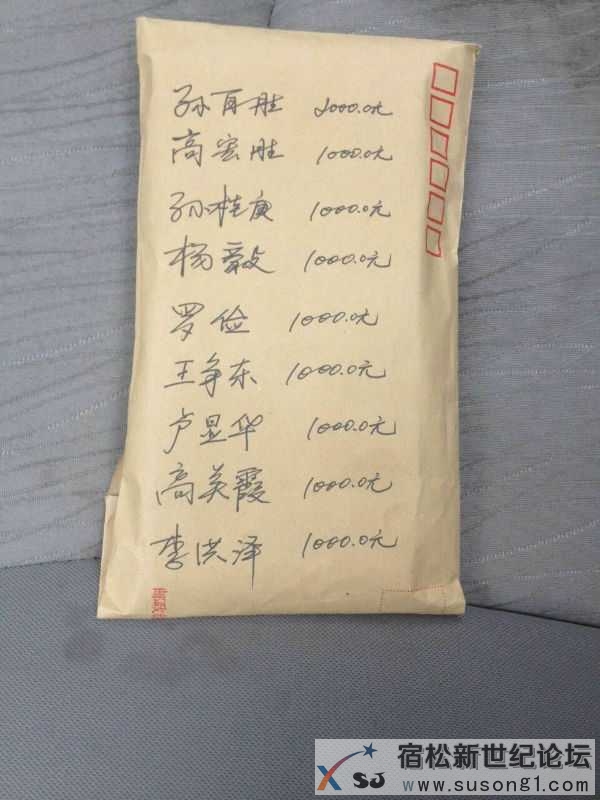 孙百胜 2000.0元
高宏胜 1000.0元
孙桂庚 1000.0元
杨毅 1000.0元
罗俭 1000.0元
王争东 1000.0元
卢显华 1000.0元
高英霞 1000.0元
李洪泽 1000.0元
XSJ
宿松新世纪论坛
www.susong1.com